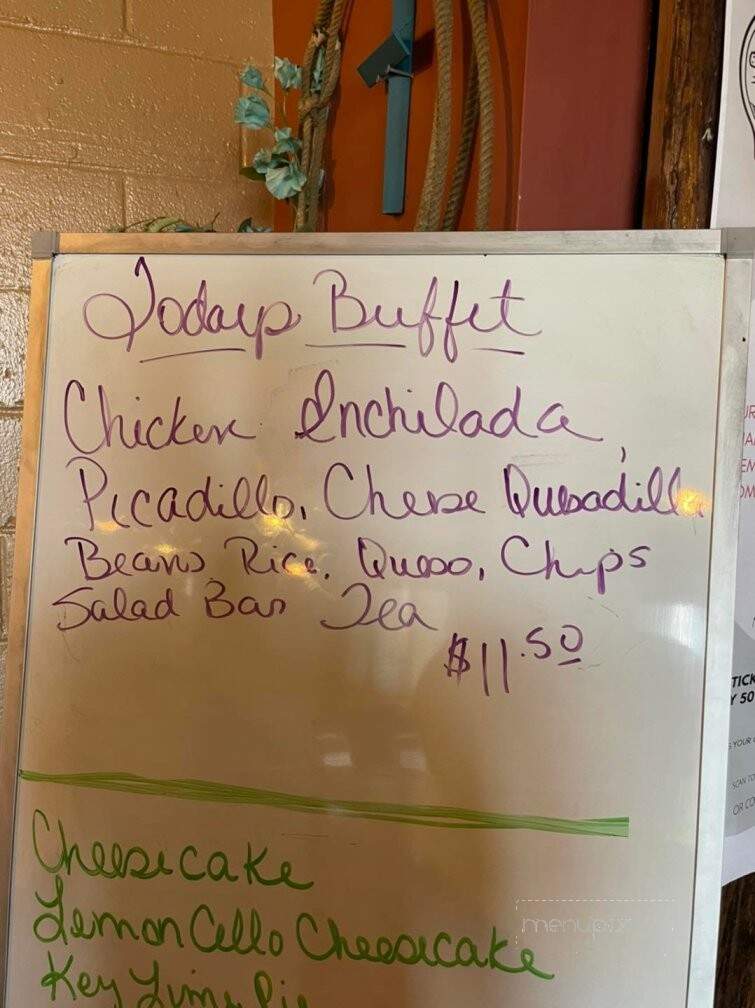 Todays Buffet
Chicken Enchilada,
Picadillo, Cheese Quesadilla
Beans Rice, Queso, Chips
Salad Bar Tea
$11.50
Cheesecake
Lemon Cello Cheesecake
Key Lime Pie
menupix
TICK
Y 50
SCAN TO
OR CO